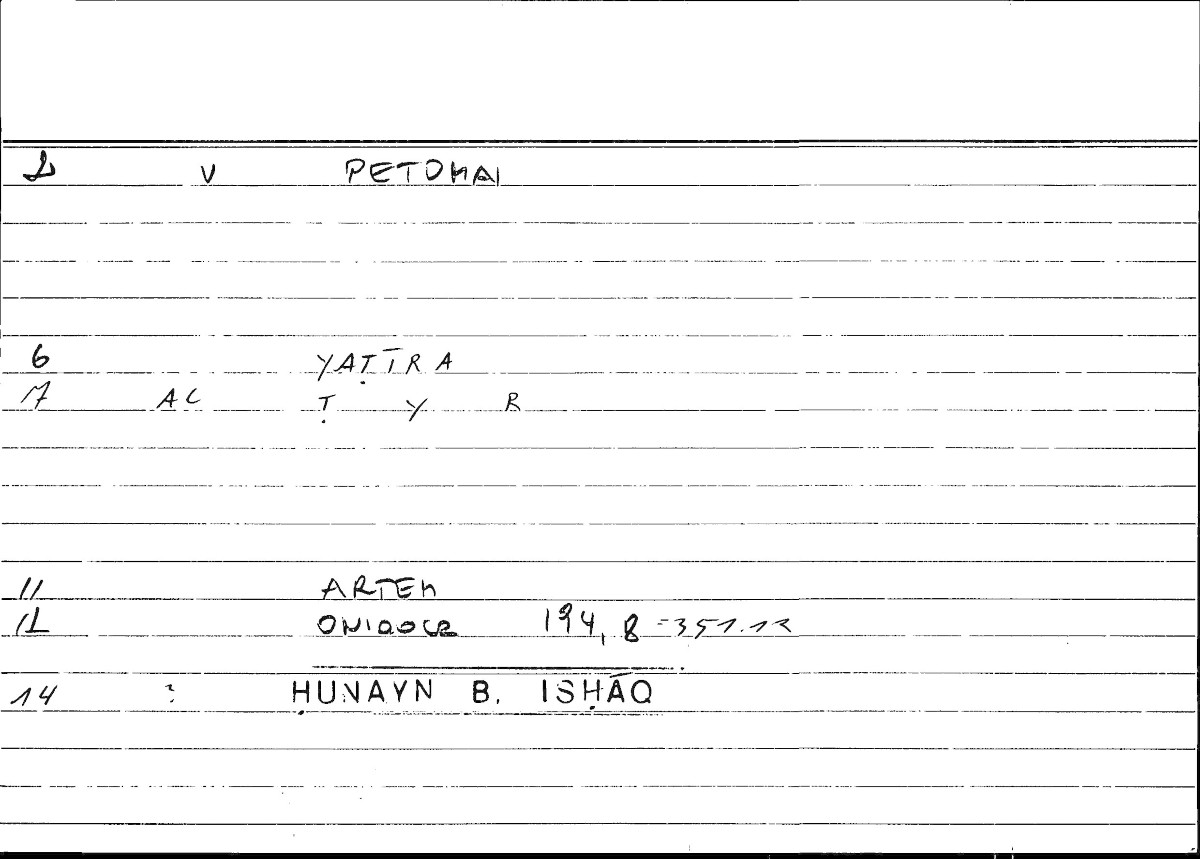 2 V PETOMAI
6 YAṬĪRA
7 AC Ṭ Y R
11 ARTEM
12 ONIROCR 194,8 = 351.12
14 ? ḤUNAYN B. ISḤĀQ